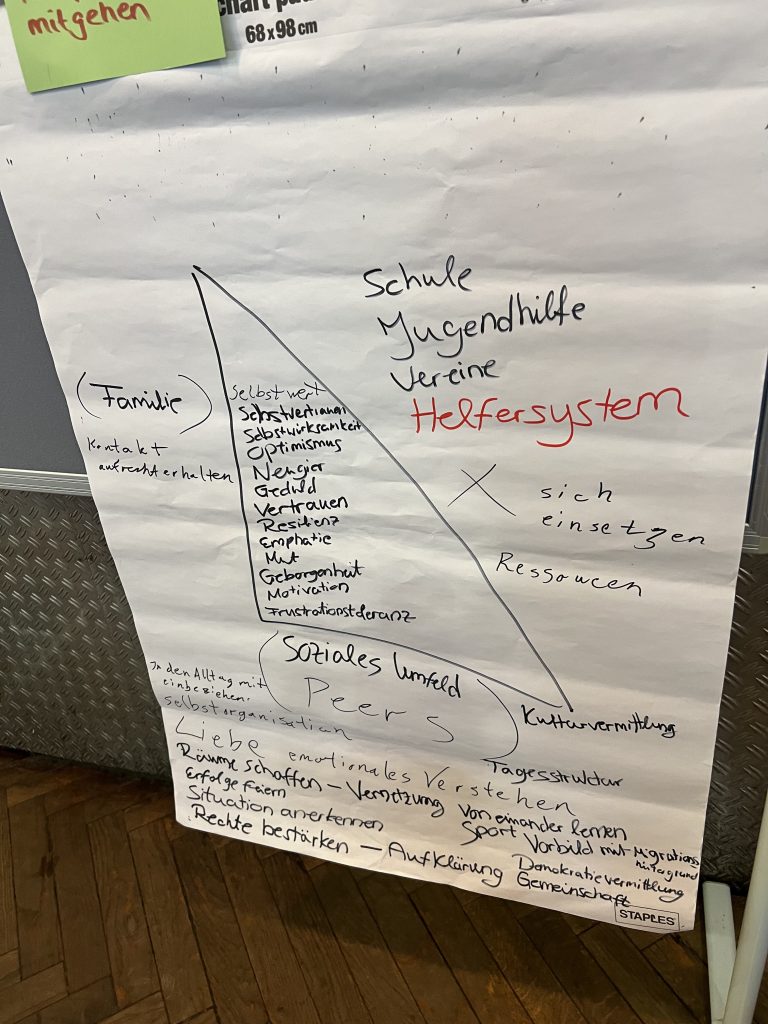 mitgehen
68 x 98 cm
Schule
Jugendhilfe
Vereine
Helfersystem
(Familie)
Kontakt
aufrecht erhalten
Selbstwert
Selbstvertrauen
Selbstwirksamkeit
Optimismus
Neugier
Geduld
Vertrauen
Resilienz
Emphatie
Mut
Geborgenheit
Motivation
Frustrationstoleranz
X sich
einsetzen
Ressourcen
(Soziales Umfeld
Peers)
In den Alltag mit
einbeziehen.
selbstorganisation
Kulturvermittlung
Tagesstruktur
Liebe
emotionales Verstehen
Räume schaffen – Vernetzung
Erfolge feiern
Situation anerkennen
Rechte bestärken – Aufklärung
Von einander lernen
Sport Vorbild mit Migrations
hintergrund
Demokratievermittlung
Gemeinschaft
STAPLES